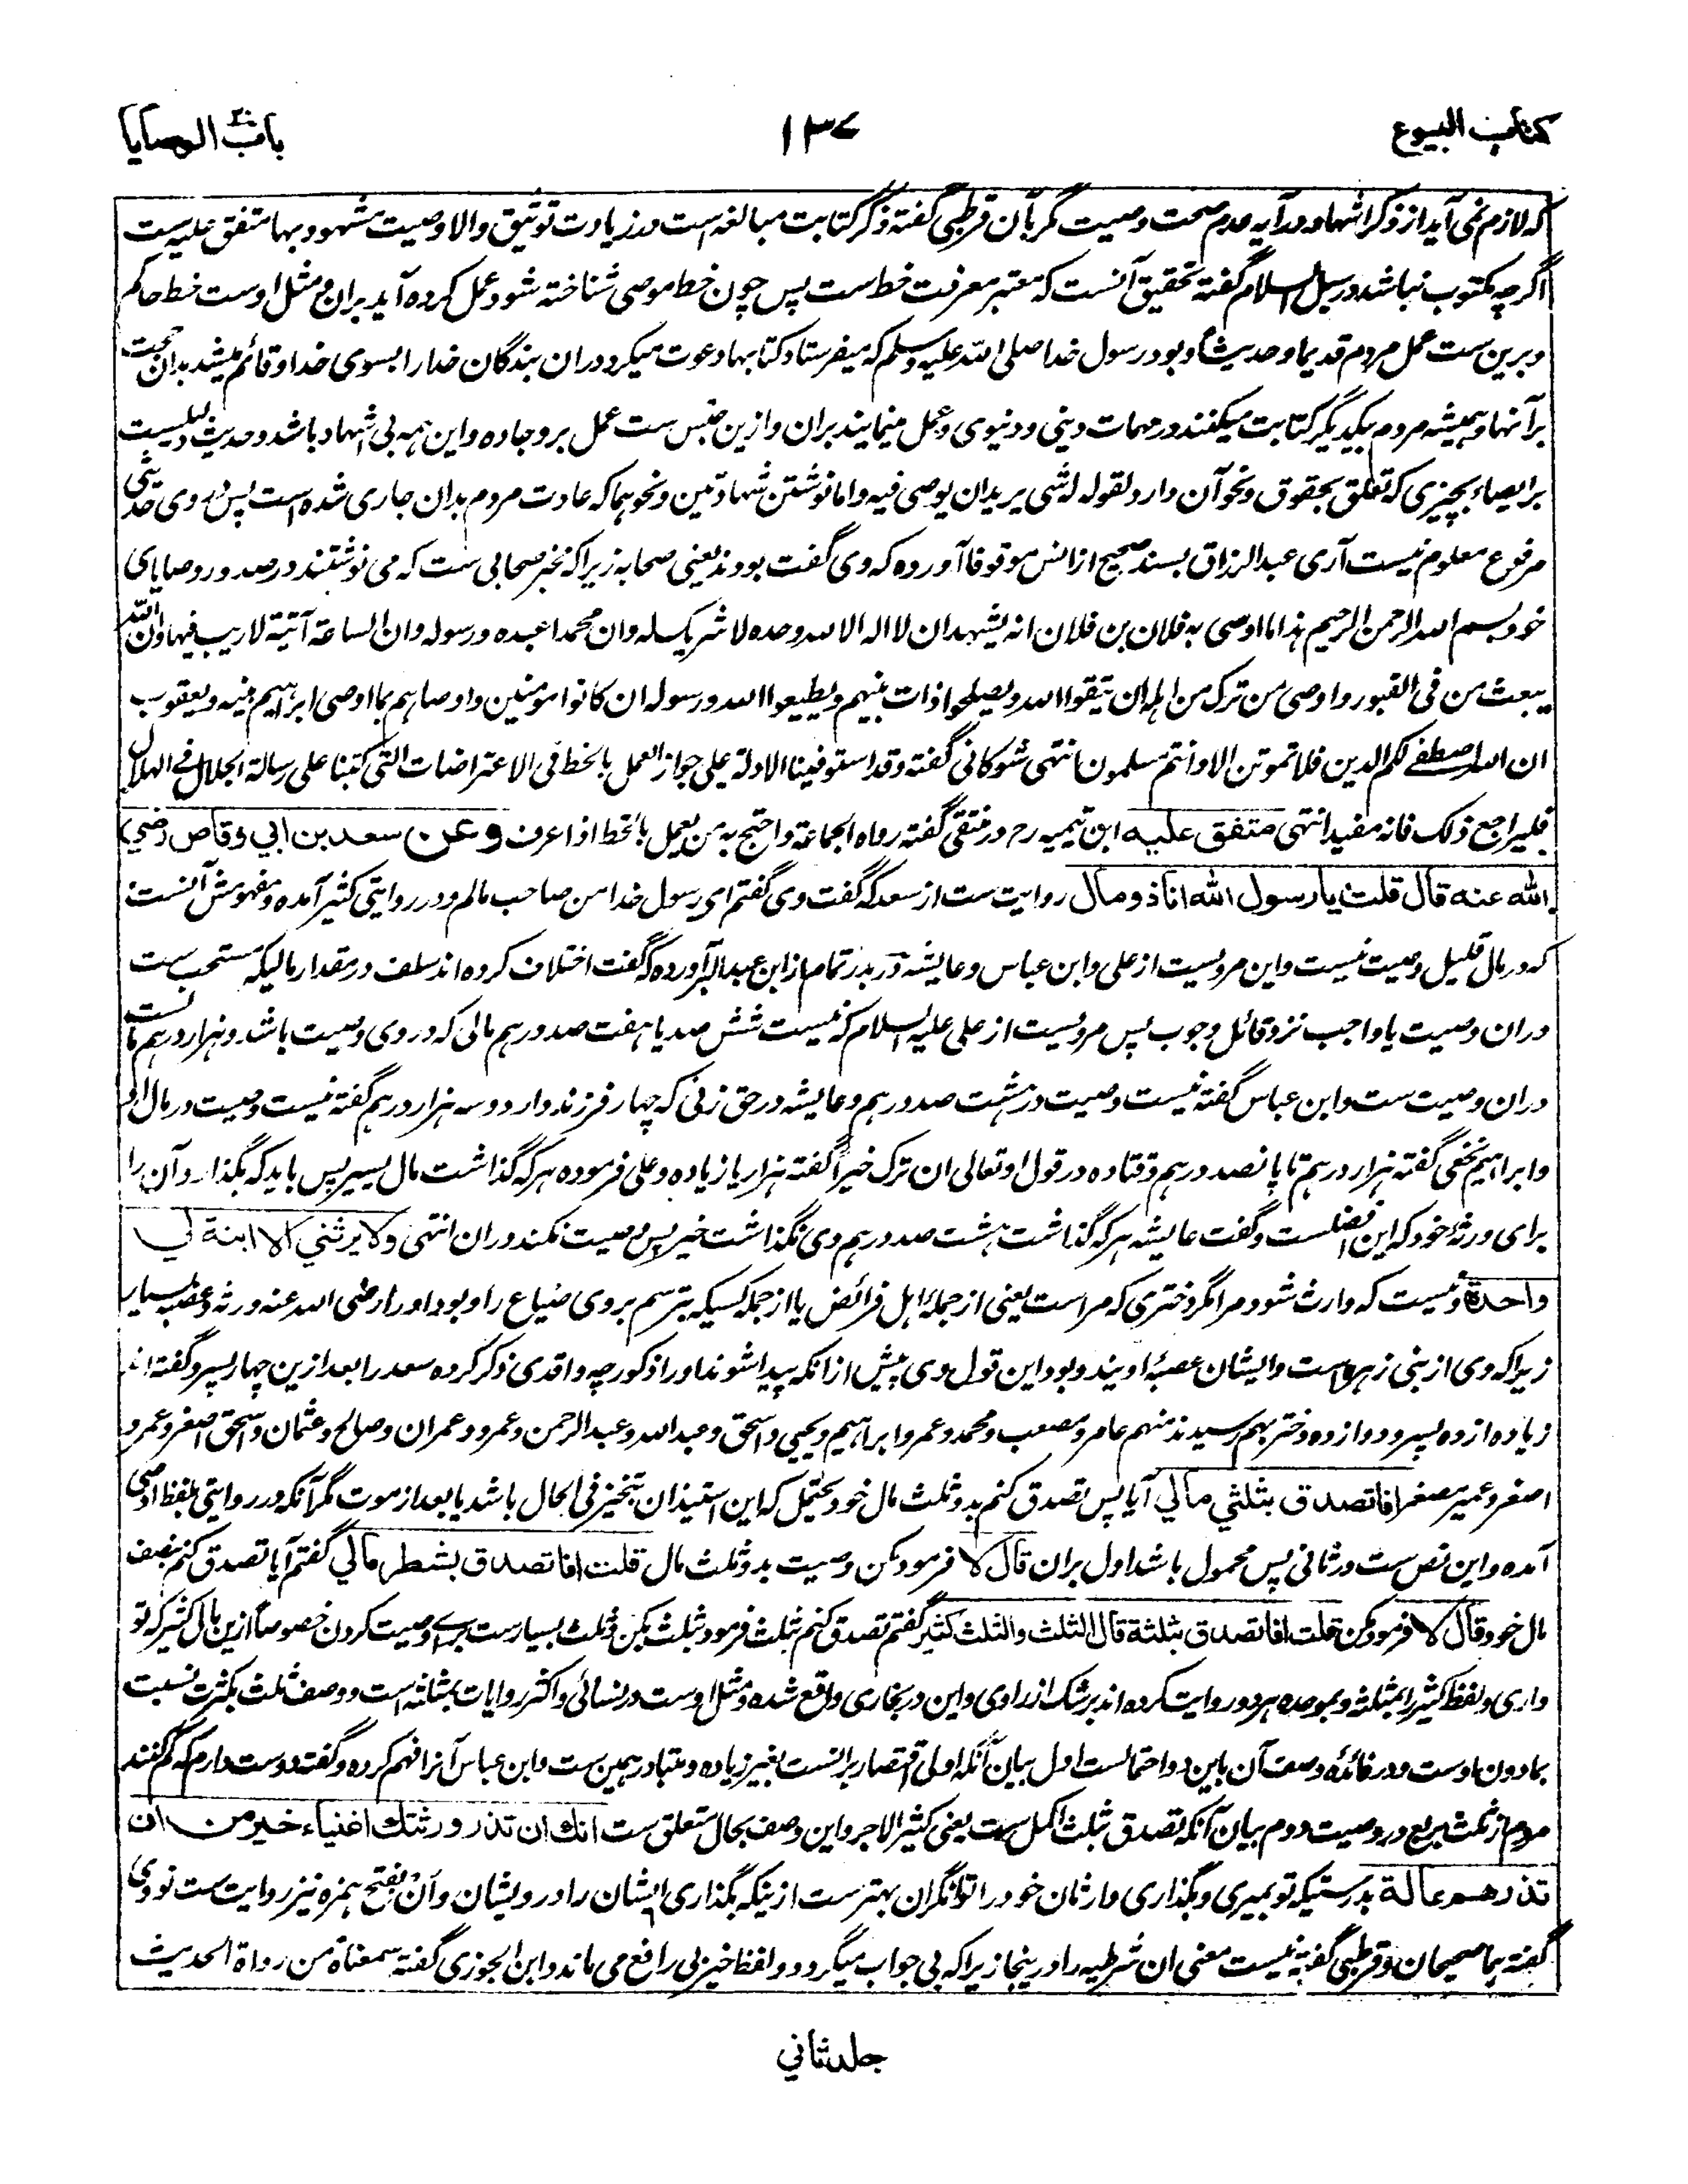 كتاب البيوع
۱۳۷
باب الوصايا
که لازم نمی آید از ذکر اشهاد در آیه عدم صحت وصیت مگر بآن قرطبی گفته ذکر کتابت مبالغه است در زیادت توثیق والا وصیت مشهود بها متفق علیه ست
اگرچه مکتوب نباشد در سبل السلام گفته تحقیق آنست که معتبر معرفت خط ست پس چون خط موصی شناخته شود عمل کرده آید بران و مثل اوست خط حاکم
و برین ست عمل مردم قدیما و حدیثاً و بود رسول خدا صلی الله علیه وسلم که میفرستاد کتابها دعوت میکرد دران بندگان خدا را بسوی خدا و قائم میشد بدان حجت
برآنها و همیشه مردم بیکدیگر کتابت میکنند در مهمات دینی و دنیوی و عمل مینمایند بران و ازین جنس ست عمل بر وجاده و این همه بی اشهاد باشد و حدیث دلیلست
بر ایصاء بچیزی که تعلق بحقوق و نحو آن دارد لقوله له شی یرید ان یوصی فیه و اما نوشتن شهادتین و نحوهما که عادت مردم بدان جاری شده است پس در وی حدیثی
مرفوع معلوم نیست آری عبد الرزاق بسند صحیح از انس موقوفا آورده که وی گفت بودند یعنی صحابه زیراکه مخبر صحابی ست که می نوشتند در صدور وصایای
خود بسم الله الرحمن الرحیم هذا ما اوصی به فلان بن فلان انه یشهد ان لا اله الا الله وحده لا شریک له وان محمدا عبده ورسوله وان الساعة آتیة لا ریب فیها وان الله
یبعث من فی القبور و اوصی من ترک من اهله ان یتقوا الله ویصلحوا ذات بینهم ویطیعوا الله ورسوله ان کانوا مومنین واوصاهم بما اوصی ابراهیم بنیه ویعقوب
ان الله اصطفی لکم الدین فلا تموتن الا وانتم مسلمون انتهی شوکانی گفته وقد استوفینا الادلة علی جواز العمل بالخط فی الاعتراضات التی کتبنا علی رسالة الجلال فی الهلال
فلیراجع ذلک فانه مفید انتهی متفق علیه ابن تیمیه رح در منتقی گفته رواه الجماعة واحتج به من یعمل بالخط اذا عرف وعن سعد بن ابي وقاص رضي
الله عنه قال قلت يا رسول الله انا ذو مال روایت ست از سعد که گفت وی گفتم ای رسول خدا من صاحب مالم و در روایتی کثیر آمده و مفهومش آنست
که در مال قلیل وصیت نیست و این مرویست از علی و ابن عباس و عایشه در بدر تمام از ابن عبد البر آورده که گفت اختلاف کرده اند سلف در مقدار مالیکه مستحب ست
دران وصیت یا واجب نزد قائل وجوب پس مرویست از علی علیه السلام که نیست شش صد یا هفت صد درهم مالی که در وی وصیت باشد و هزار درهم مالست
دران وصیت ست و ابن عباس گفته نیست وصیت در هشت صد درهم و عایشه در حق زنی که چهار فرزند دارد و سه هزار درهم گفته نیست وصیت در مال او
و ابراهیم نخعی گفته هزار درهم تا پانصد درهم و قتاده در قول او تعالی ان ترک خیراً گفته هزار یا زیاده و علی فرموده هر که گذاشت مال یسیر پس باید که بگذارد آن را
برای ورثه خود که این افضلست و گفت عایشه هر که گذاشت هشت صد درهم وی نگذاشت خیر پس وصیت نکند دران انتهی ولا يرثني الا ابنة لي
واحدة و نیست که وارث شود مرا مگر دختری که مراست یعنی از جمله اهل فرائض یا از جمله کسیکه بترسم بر وی ضیاع را و بود او را رضی الله عنه ورثه و عصبه بسیار
زیراکه وی از بنی زهره است و ایشان عصبۀ اویند و بود این قول وی پیش ازانکه پیدا شوند او را ذکور چه واقدی ذکر کرده سعد را بعد ازین چهار پسر و گفته اند
زیاده از ده پسر و دوازده دختر بهم رسیدند منهم عامر و مصعب و محمد و عمر و ابراهیم و یحیی و اسحق و عبد الله و عبد الرحمن و عمرو و عمران و صالح و عثمان و اسحق اصغر و عمرو
اصغر و عمیر مصغر افاتصدق بثلثي مالي آیا پس تصدق کنم بدو ثلث مال خود یحتمل که این استیذان بتنجیز فی الحال باشد یا بعد از موت مگر آنکه در روایتی بلفظ اوصی
آمده و این نص ست در ثانی پس محمول باشد اول بران قال لا فرمود مکن وصیت بدو ثلث مال قلت افاتصدق بشطر مالي گفتم آیا تصدق کنم بنصف
مال خود قال لا فرمود مکن قلت افاتصدق بثلثه قال الثلث والثلث كثير گفتم تصدق کنم بثلث فرمود بثلث بکن و ثلث بسیارست برای وصیت کردن خصوصاً ازین مال کثیر که تو
داری و لفظ کثیر را بمثلثه و بموحده هر دو روایت کرده اند بر شک از راوی و این در بخاری واقع شده و مثل اوست در نسائی و اکثر روایات بمثلثه است و وصف ثلث بکثرت نسبت
بما دون اوست و در فائدۀ وصف آن باین دو احتمالست اول بیان آنکه اولی اقتصار برانست بغیر زیاده و متبادر همین ست و ابن عباس آنرا فهم کرده و گفته دوست دارم که کم کنند
مردم از ثلث بربع در وصیت دوم بیان آنکه تصدق بثلث اکمل ست یعنی کثیر الاجر و این وصف بحال متعلق ست انك ان تذر ورثتك اغنياء خير من ان
تذرهم عالة بدرستیکه تو بمیری و بگذاری وارثان خود را توانگران بهترست ازینکه بگذاری ایشان را درویشان و ان بفتح همزه نیز روایت ست نووی
گفته هما صحیحان و قرطبی گفته نیست معنی ان شرطیه را درینجا زیراکه بی جواب میگردد و لفظ خیر بی رافع می ماند و ابن الجوزی گفته سمعناه من رواة الحدیث
جلد ثاني